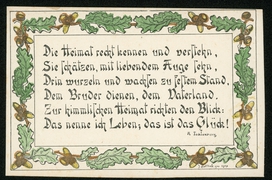 Die Heimat recht kennen und verstehn,
Sie schätzen, mit liebendem Auge sehn,
Drin wurzeln und wachsen zu festem Stand,
Dem Bruder dienen, dem Vaterland.
Zur himmlischen Heimat richten den Blick:
Das nenne ich Leben, das ist das Glück!